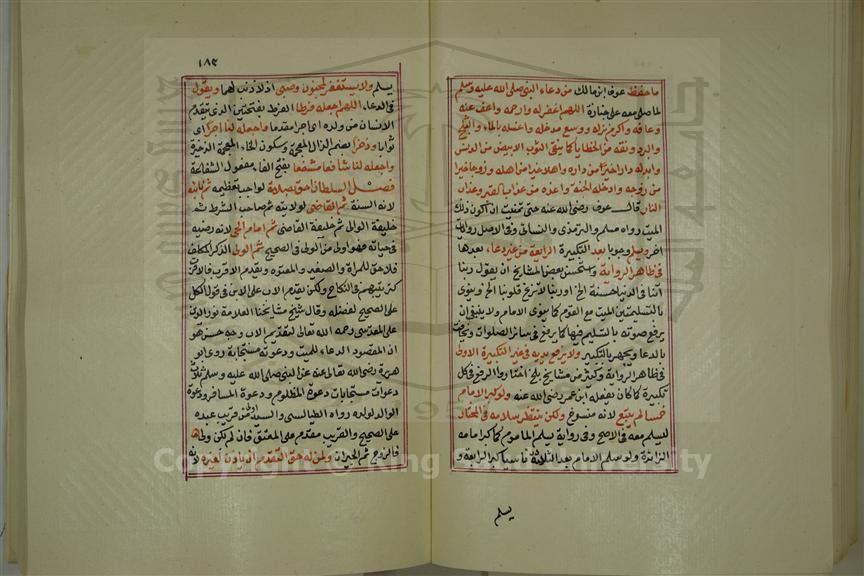 ما حفظ عوف ابن مالك من دعاء النبي صلى الله عليه وسلم
لما صلى معه على جنازة اللهم اغفر له وارحمه واعف عنه
وعافه واكرم نزله ووسع مدخله واغسله بالماء والثلج
والبرد ونقه من الخطايا كما ينقى الثوب الابيض من الدنس
وابدله دارا خيرا من داره واهلا خيرا من اهله وزوجا خيرا
من زوجه وادخله الجنة واعذه من عذاب القبر وعذاب
النار قال عوف رضي الله عنه حتى تمنيت ان اكون ذلك
الميت رواه مسلم والترمذي والنسائي وفي الاصل روايات
اخر ويسلم وجوبا بعد التكبيرة الرابعة من غير دعاء بعدها
في ظاهر الرواية واستحسن بعض المشايخ ان يقول ربنا
اتنا في الدنيا حسنة الخ او ربنا لا تزغ قلوبنا الخ وينوي
بالتسليمتين الميت مع القوم كما ينوي الامام ولا ينبغي ان
يرفع صوته بالتسليم فيها كما يرفع في سائر الصلوات ويخافت
بالدعا ويجهر بالتكبير ولا يرفع يديه في غير التكبيرة الاولى
في ظاهر الرواية وكثير من مشايخ بلخ اختاروا الرفع في كل
تكبيرة كما كان يفعله ابن عمر رضي الله عنه ولو كبر الامام
خمسا لم يتبع لانه منسوخ ولكن ينتظر سلامه في المختار
ليسلم معه في الاصح وفي رواية يسلم الماموم كما كبر امامه
الزائدة ولو سلم الامام بعد الثلاثة ناسيا كبر الرابعة و
يسلم
١٨٣
يسلم ولا يستغفر لمجنون وصبي اذ لا ذنب لهما ويقول
في الدعاء اللهم اجعله فرطا الفرط بفتحتين الذي يتقدم
الانسان من ولده اي اجرا مقدما واجعله لنا اجرا اي
ثوابا وذخرا بضم الذال المعجمة وسكون الخاء المعجمة الذخيرة
واجعله لنا شافعا مشفعا بفتح الفاء مقبول الشفاعة
فصل السلطان احق بصلاته لواجب تعظيمه ثم نائبه
لانه السنة ثم القاضي لولايته ثم صاحب الشرط ثم
خليفة الوالي ثم خليفة القاضي ثم امام الحي لانه رضيه
في حياته فهو اولى من الولي في الصحيح ثم الولي الذكر المكلف
فلا حق للمراة والصغير والمعتوه ويقدم الاقرب فالاقرب
كترتيبهم في النكاح ولكن يقدم الاب على الابن في قول الكل
على الصحيح لفضله وقال شيخ مشايخنا العلامة نور الدين
على المقدسي رحمه الله تعالى لتقديم الاب وجه حسن هو
ان المقصود الدعاء للميت ودعوته مستجابة روى ابو
هريرة رضي الله تعالى عنه عن النبي صلى الله عليه وسلم ثلاث
دعوات مستجابات دعوة المظلوم ودعوة المسافر ودعوة
الوالد لولده رواه الطيالسي والسيد اولى من قريب عبده
على الصحيح والقريب مقدم على المعتق فان لم يكن ولي
فالزوج ثم الجيران ولمن له حق التقدم ان ياذن لغيره لانه
Copyright © King Saud University